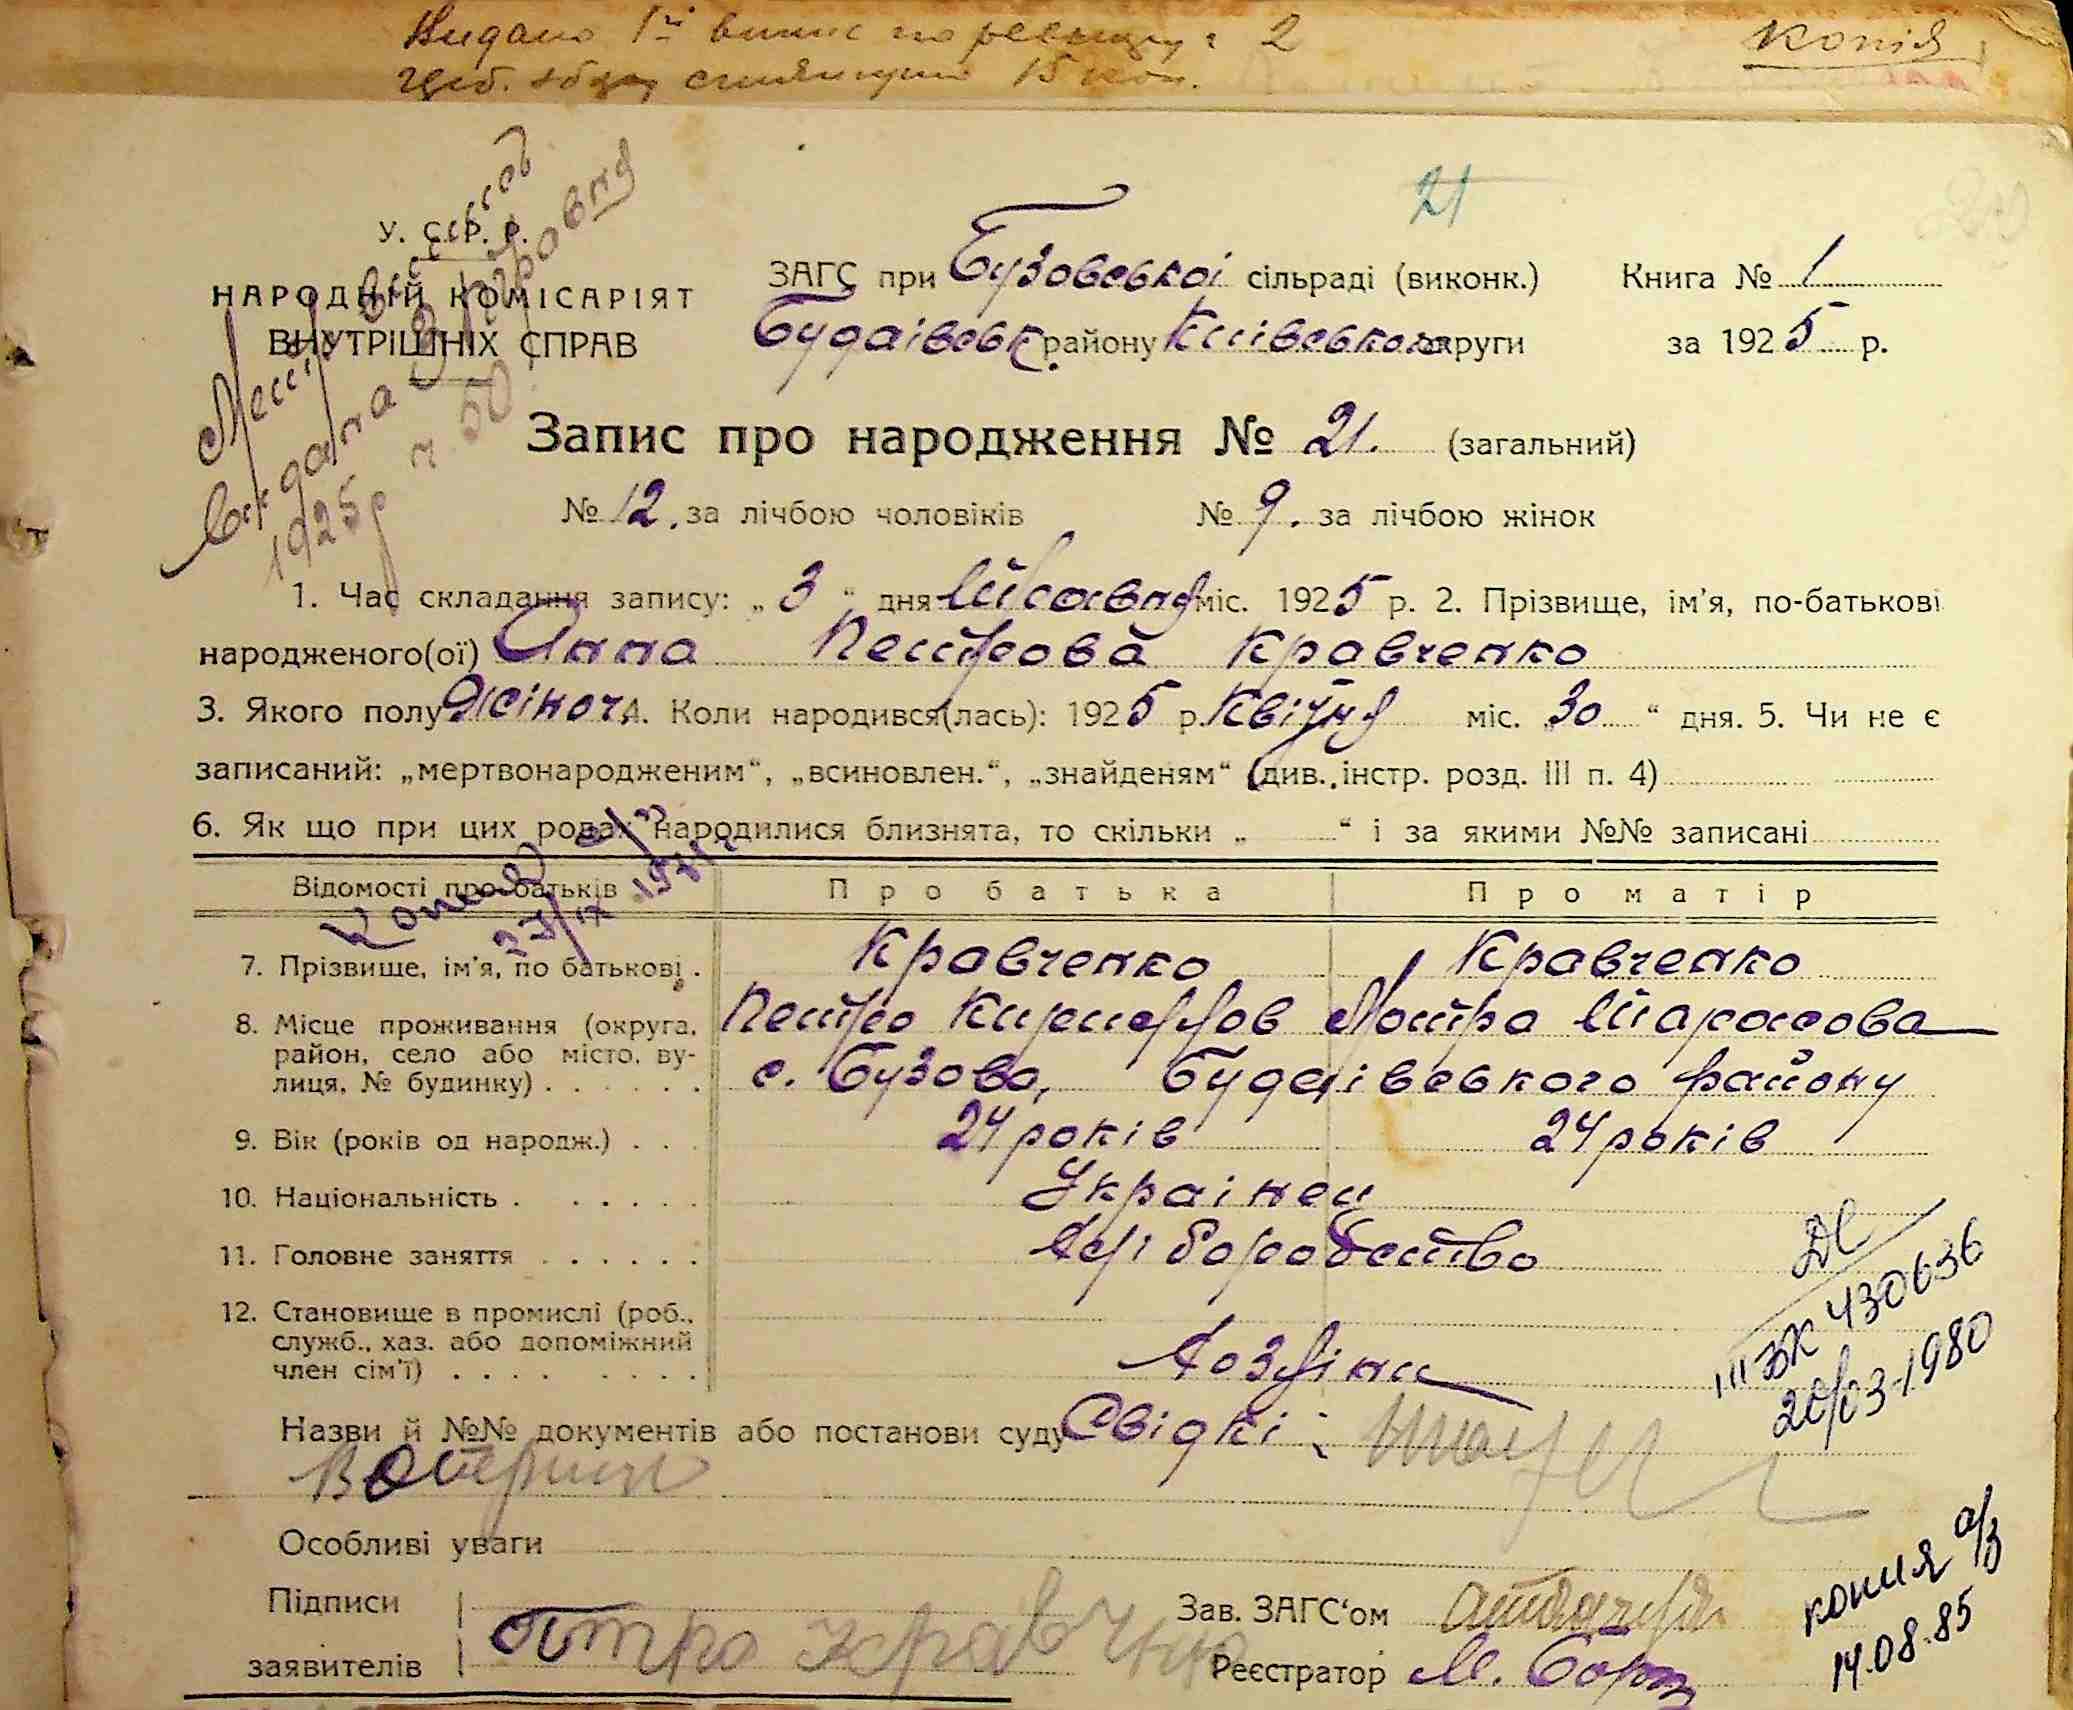 Видано 1й випис по реєстру: 2
Копія
21
У. С. Р. Р.
НАРОДНІЙ КОМІСАРІЯТ
ВНУТРІШНІХ СПРАВ
ЗАГС при Бузовській сільраді (виконк.) Книга № 1
Будаівськ. району Київського округи за 1925 р.
1925 р ч. 50
Запис про народження № 21. (загальний)
№ 12. за лічбою чоловіків № 9. за лічбою жінок
1. Час складання запису: „ 3 “ дня Травня міс. 1925 р. 2. Прізвище, ім'я, по-батькові
народженого(ої) Анна Петрова Кравченко
3. Якого полу Жіноч. 4. Коли народився(лась): 1925 р. Квітня міс. „30 “ дня. 5. Чи не є
записаний: „мертвонародженим“, „всиновлен.“, „знайденям“ (див. інстр. розд. III п. 4)
6. Як що при цих родах народилися близнята, то скільки „ “ і за якими №№ записані
Відомості про батьків Про батька Про матір
7. Прізвище, ім'я, по батькові. Кравченко Кравченко
8. Місце проживання (округа, Петро Кирилов Мотра Тарасова
район, село або місто, ву-
лиця, № будинку) с. Бузова, Будаівського району
9. Вік (років од народж.) 24 років 24 років
10. Національність Українец
11. Головне заняття Хріборобство
12. Становище в промислі (роб.,
служб., хаз. або допоміжний
член сім'ї) Хозяіни
Копия а/з
27/IX 1971 г
ДС
III ЖК 430636
20/03-1980
Назви й №№ документів або постанови суду Свідкі:
Особливі уваги
копия а/з
14.08.85
Підписи
заявителів
Петро Кравченко
Зав. ЗАГС'ом
Реєстратор М.